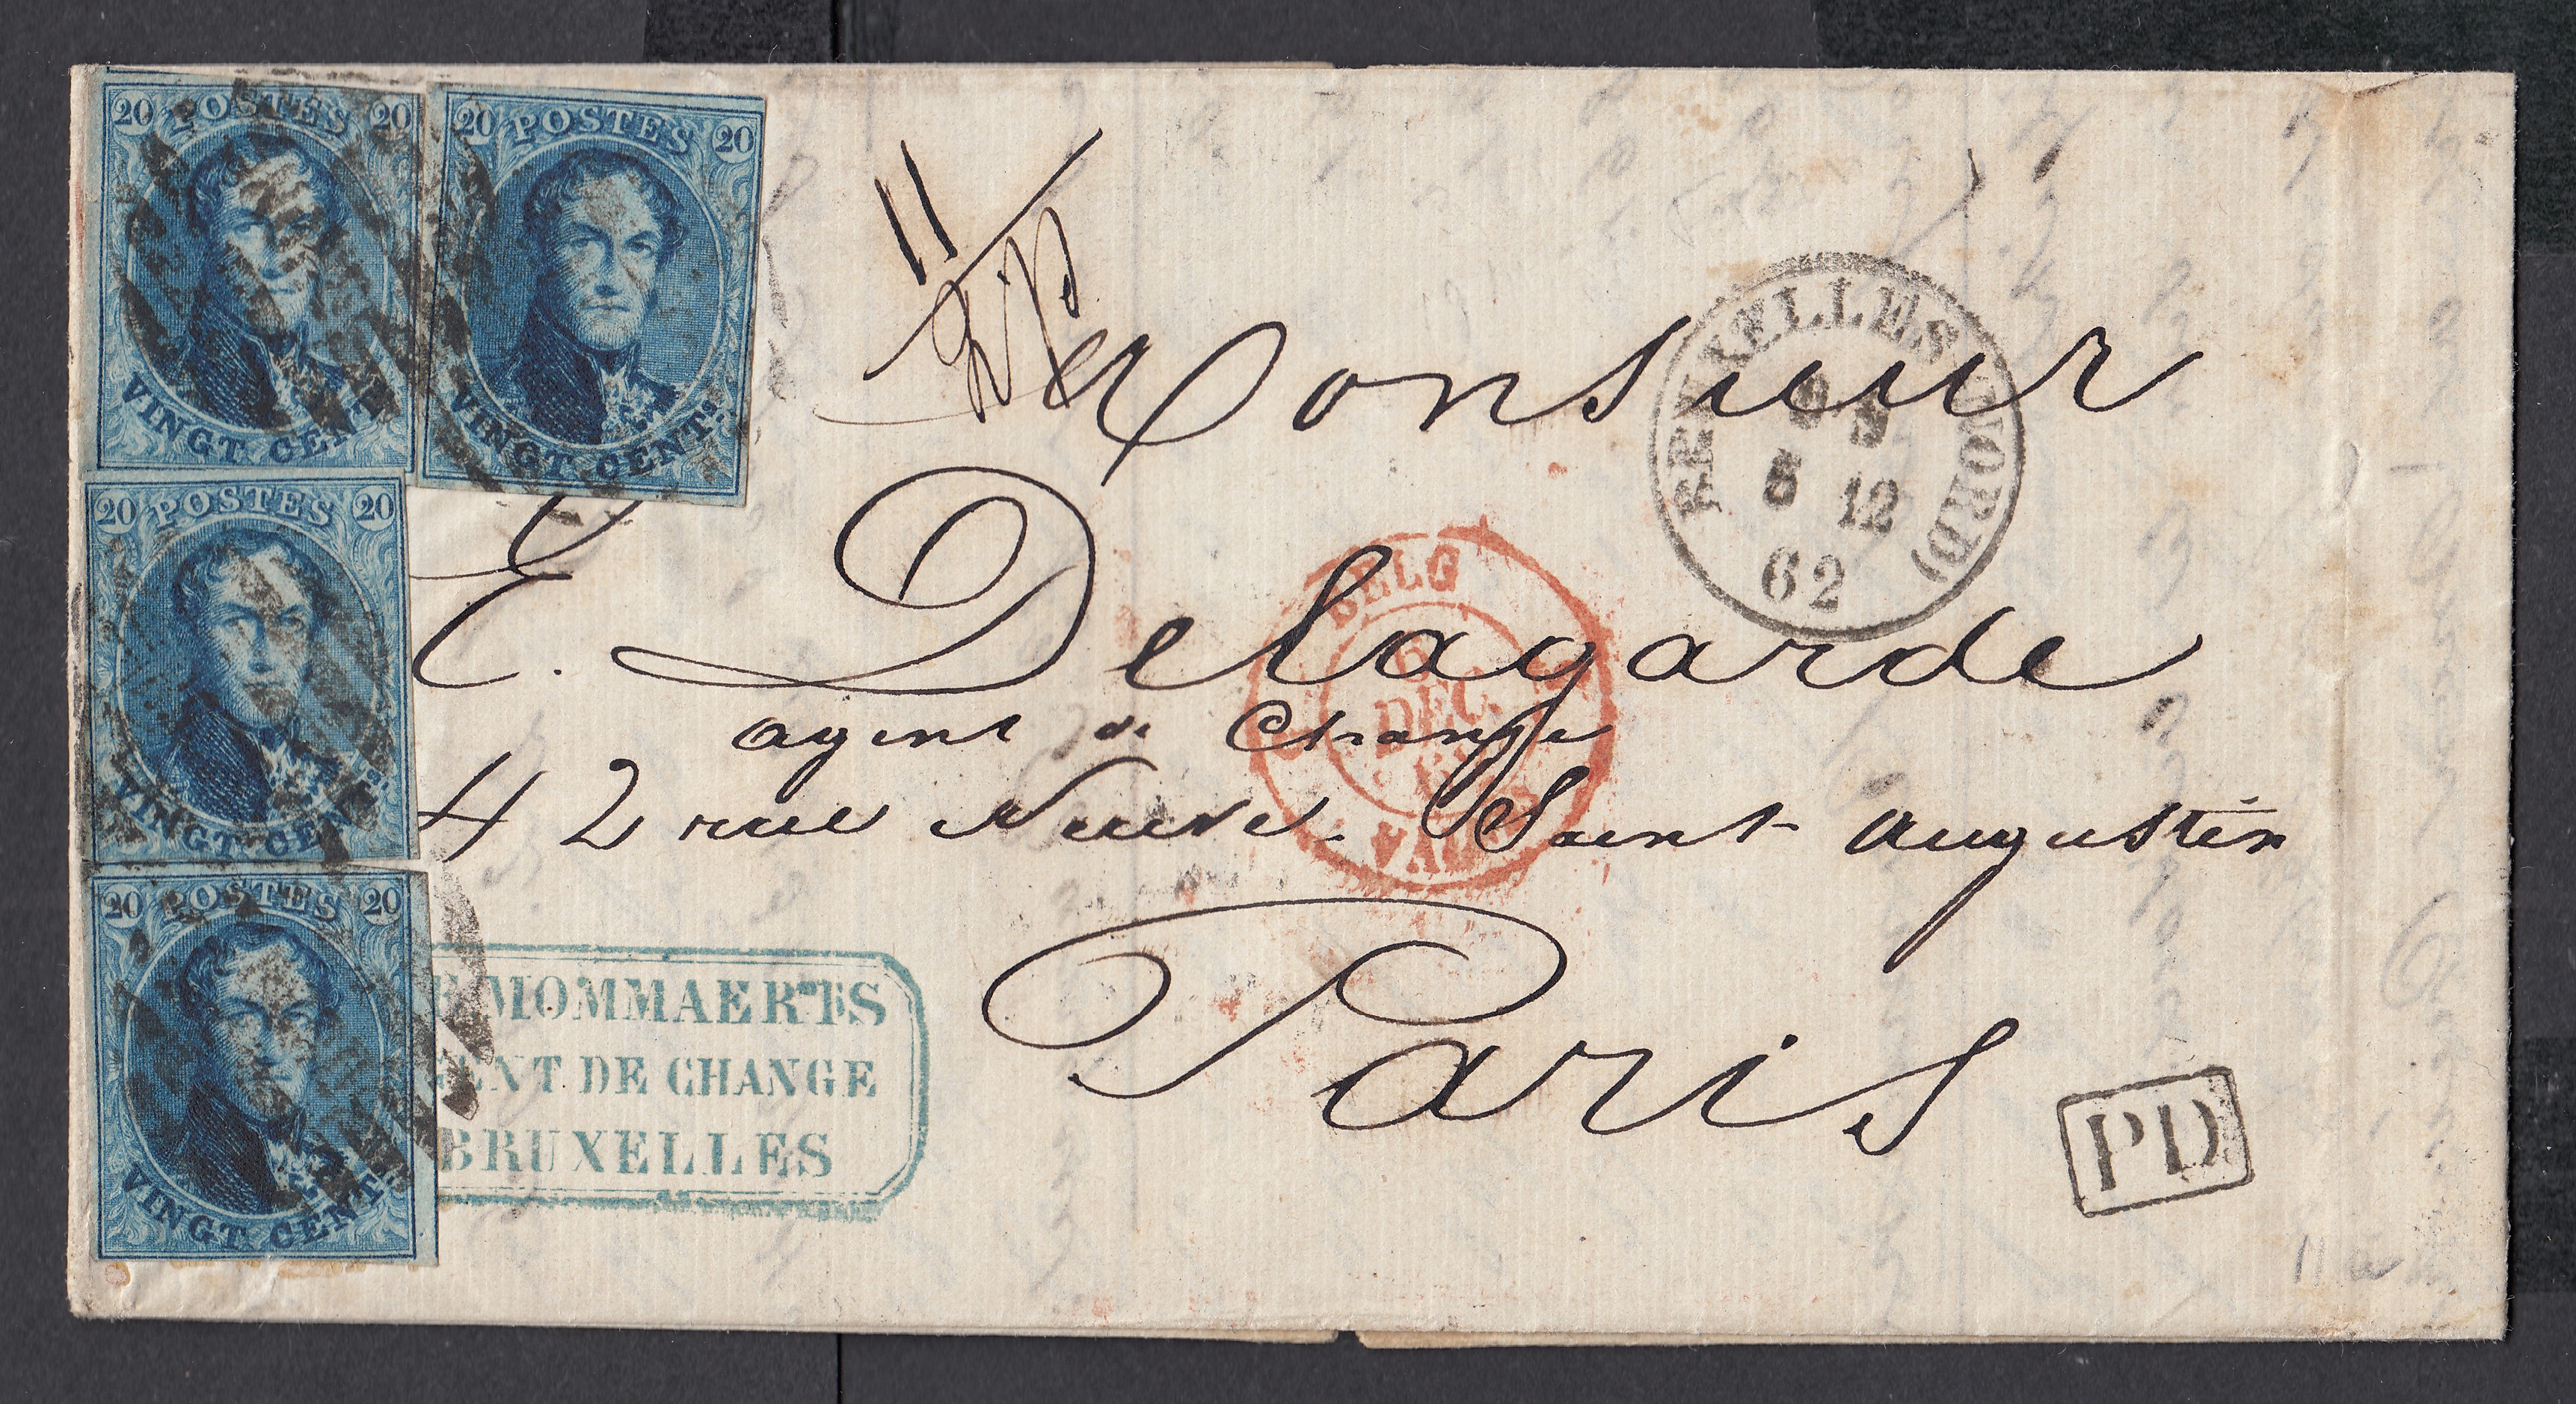 20 POSTES 20
VINGT CENTS
20 POSTES 20
VINGT CENTS
20 POSTES 20
VINGT CENTS
20 POSTES 20
VINGT CENTS
11
BRUXELLES (NORD)
5 12
62
Monsieur
E. Delagarde
agent de Change
42 rue Neuve Saint Augustin
Paris
BELG
6
DEC.
MOMMAERTS
ENT DE CHANGE
BRUXELLES
PD
11 a